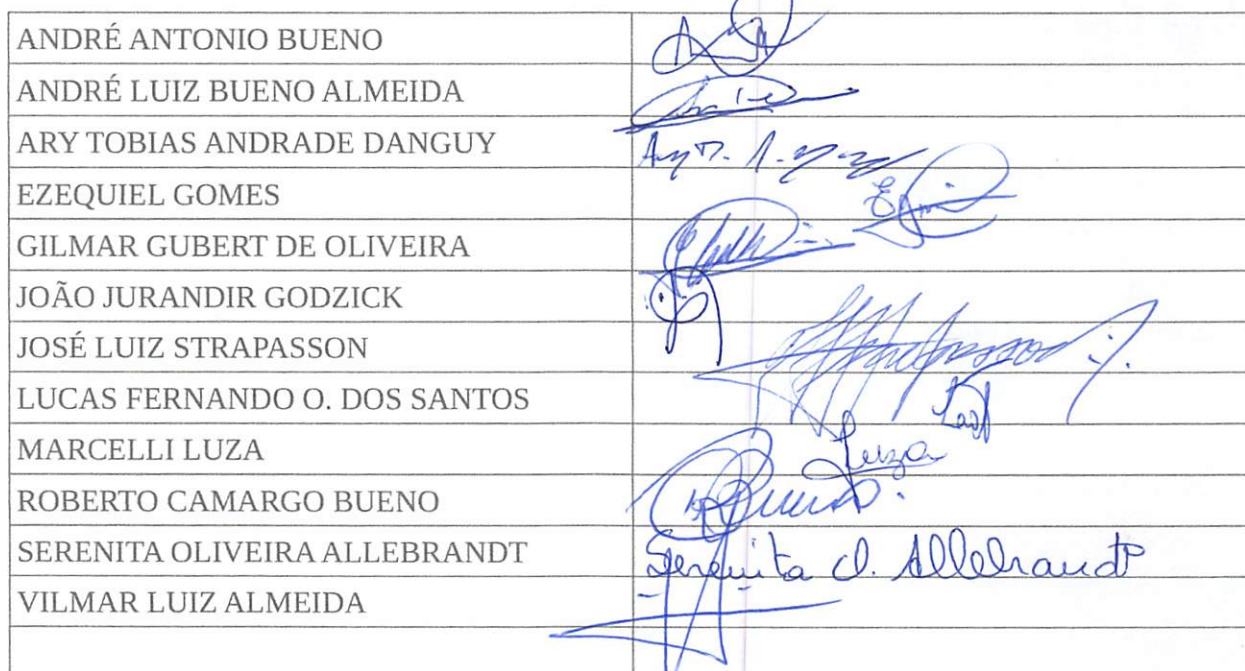 ANDRÉ ANTONIO BUENO
ANDRÉ LUIZ BUENO ALMEIDA
ARY TOBIAS ANDRADE DANGUY
EZEQUIEL GOMES
GILMAR GUBERT DE OLIVEIRA
JOÃO JURANDIR GODZICK
JOSÉ LUIZ STRAPASSON
LUCAS FERNANDO O. DOS SANTOS
MARCELLI LUZA Luza
ROBERTO CAMARGO BUENO Bueno
SERENITA OLIVEIRA ALLEBRANDT Serenita O. Allebrandt
VILMAR LUIZ ALMEIDA